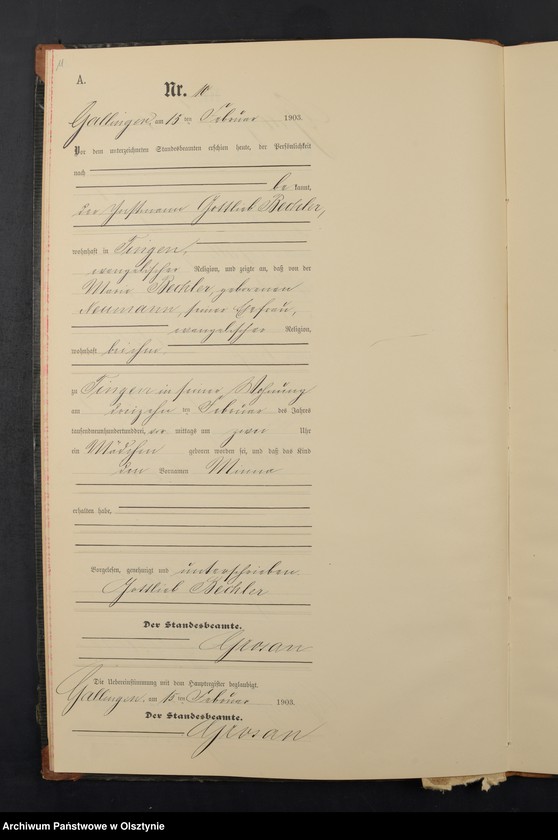 A.
Nr. 10
Gallingen, am 15 ten Februar 1903.
Vor dem unterzeichneten Standesbeamten erschien heute, der Persönlichkeit
nach
be kannt,
der Instmann Gottlieb Bechler,
wohnhaft in Tingen,
evangelischer Religion, und zeigte an, daß von der
Marie Bechler, geborenen
Neumann, seiner Ehefrau,
evangelischer Religion,
wohnhaft bei ihm
zu Tingen in seiner Wohnung
am dreizehn ten Februar des Jahres
tausendneunhundertunddrei, vor mittags um zwei Uhr
ein Mädchen geboren worden sei, und daß das Kind
den Vornamen Minna
erhalten habe,
Vorgelesen, genehmigt und unterschrieben
Gottlieb Bechler
Der Standesbeamte.
Grosan
Die Uebereinstimmung mit dem Hauptregister beglaubigt.
Gallingen, am 15 ten Februar 1903.
Der Standesbeamte.
Grosan
Archiwum Państwowe w Olsztynie